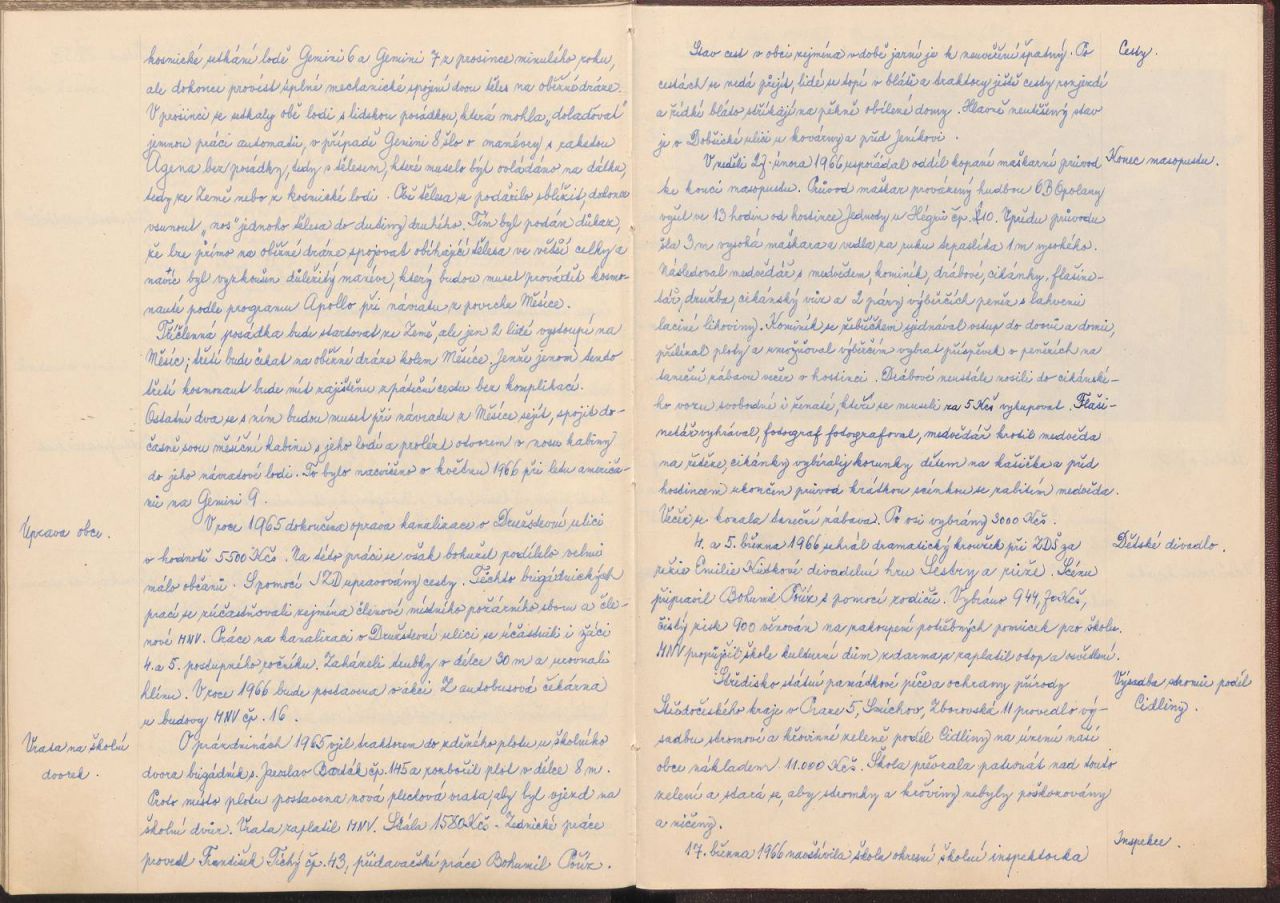 kosmické setkání lodě Gemini 6 a Gemini 7 z prosince minulého roku,
ale dokonce provést úplné mechanické spojení dvou těles na oběžné dráze.
V prosinci se setkaly obě lodi s lidskou posádkou, která mohla „doladovat"
jemnou práci automatu, v případě Gemini 8 šlo o manévry s raketou
Agena bez posádky, tedy s tělesem, které muselo být ovládáno na dálku,
tedy ze Země nebo z kosmické lodi. Obě tělesa se podařilo sblížit, dokonce
vsunout „nos" jednoho tělesa do dutiny druhého. Tím byl podán důkaz,
že lze přímo na oběžné dráze spojovat obíhající tělesa ve větší celky a
navíc byl vyzkoušen důležitý manévr, který budou muset provádět kosmo-
nauté podle programu Apollo při návratu z povrchu Měsíce.
Tříčlenná posádka bude startovat ze Země, ale jen 2 lidé vystoupí na
Měsíc; třetí bude čekat na oběžné dráze kolem Měsíce. Jenže jenom tento
třetí kosmonaut bude mít zajištěnu zpáteční cestu bez komplikací.
Ostatní dva se s ním budou muset při návratu z Měsíce sejít, spojit do-
časně svou měsíční kabinu s jeho lodí a prolézt otvorem v nosu kabiny
do jeho návratové lodi. To bylo nacvičeno v květnu 1966 při letu američa-
nů na Gemini 9.
Úprava obce.
V roce 1965 dokončena oprava kanalizace v Družstevní ulici
v hodnotě 5500 Kčs. Na této práci se však bohužel podílelo velmi
málo občanů. S pomocí JZD upravovány cesty. Těchto brigádnických
prací se zúčastňovali zejména členové místního požárního sboru a čle-
nové MNV. Práce na kanalizaci v Družstevní ulici se účástnili i žáci
4. a 5. postupného ročníku. Zaháněli trubky v délce 30 m a urovnali
hlínu. V roce 1966 bude postavena v akci Z autobusová čekárna
u budovy MNV čp. 16.
Vrata na školní
dvorek.
O prázdninách 1965 vjel traktorem do zděného plotu u školního
dvora brigádník s. Jaroslav Barták čp. 145 a rozbořil plot v délce 8 m.
Proto místo plotu postavena nová plechová vrata, aby byl vjezd na
školní dvůr. Vrata zaplatil MNV. Stála 1580 Kčs - Zednické práce
provedl František Tichý čp. 43, přidavačské práce Bohumil Pour.
Stav cest v obci zejména v době jarní je k neuvěření špatný. Po
Cesty.
cestách se nedá přejít, lidé se topí v blátě a traktory ještě cesty rozjezdí
a řídké bláto stříkají na pěkně obílené domy. Hlavně neutěšený stav
je v Dobšické ulici u kovárny a před Jeníkovi.
V neděli 27. února 1966 uspořádal oddíl kopané maškarní průvod
Konec masopustu.
ke konci masopustu. Průvod maškar prováděný hudbou OB Opolany
vyšel ve 13 hodin od hostince Jednoty u Hégrů čp. 110. Vpředu průvodu
šla 3 m vysoká maškara a vedla za ruku trpaslíka 1 m vysokého.
Následoval medvědář s medvědem, kominík, drábové, cikánky, flašine-
tář, družba, cikánský vůz a 2 páry výběrčích peněz s lahvemi
laciné lihoviny. Kominík se žebříčkem sjednával vstup do dvorů a domů,
přelézal ploty a umožňoval výběrčím vybrat příspěvek v penězích na
taneční zábavu večer v hostinci. Drábové neustále nosili do cikánské-
ho vozu svobodné i ženaté, kteří se museli za 5 Kčs vykupovat. Flaši-
netář vyhrával, fotograf fotografoval, medvědář krotil medvěda
na řetěze, cikánky vybíraly korunky dětem na kašičku a před
hostincem ukončen průvod krátkou scénkou se zabitím medvěda.
Večer se konala taneční zábava. Po vsi vybrány 3000 Kčs.
4. a 5. března 1966 sehrál dramatický kroužek při ZDŠ za
Dětské divadlo.
režie Emilie Kutkové divadelní hru Sestry a růže. Scénu
připravil Bohumil Pour s pomocí rodičů. Vybráno 944,70 Kčs,
čistý zisk 900 věnován na zakoupení potřebných pomůcek pro školu.
MNV propůjčil škole kulturní dům zdarma a zaplatil otop a osvětlení.
Středisko státní památkové péče a ochrany přírody
Výsadba stromů podél
Cidliny.
Středočeského kraje v Praze 5, Smíchov, Zborovská 11 provedlo vý-
sadbu stromové a křovinné zeleně podél Cidliny na území naší
obce nákladem 11.000 Kčs. Škola převzala patronát nad touto
zelení a stará se, aby stromky a křoviny nebyly poškozovány
a ničeny.
17. března 1966 navštívila školu okresní školní inspektorka
Inspekce.